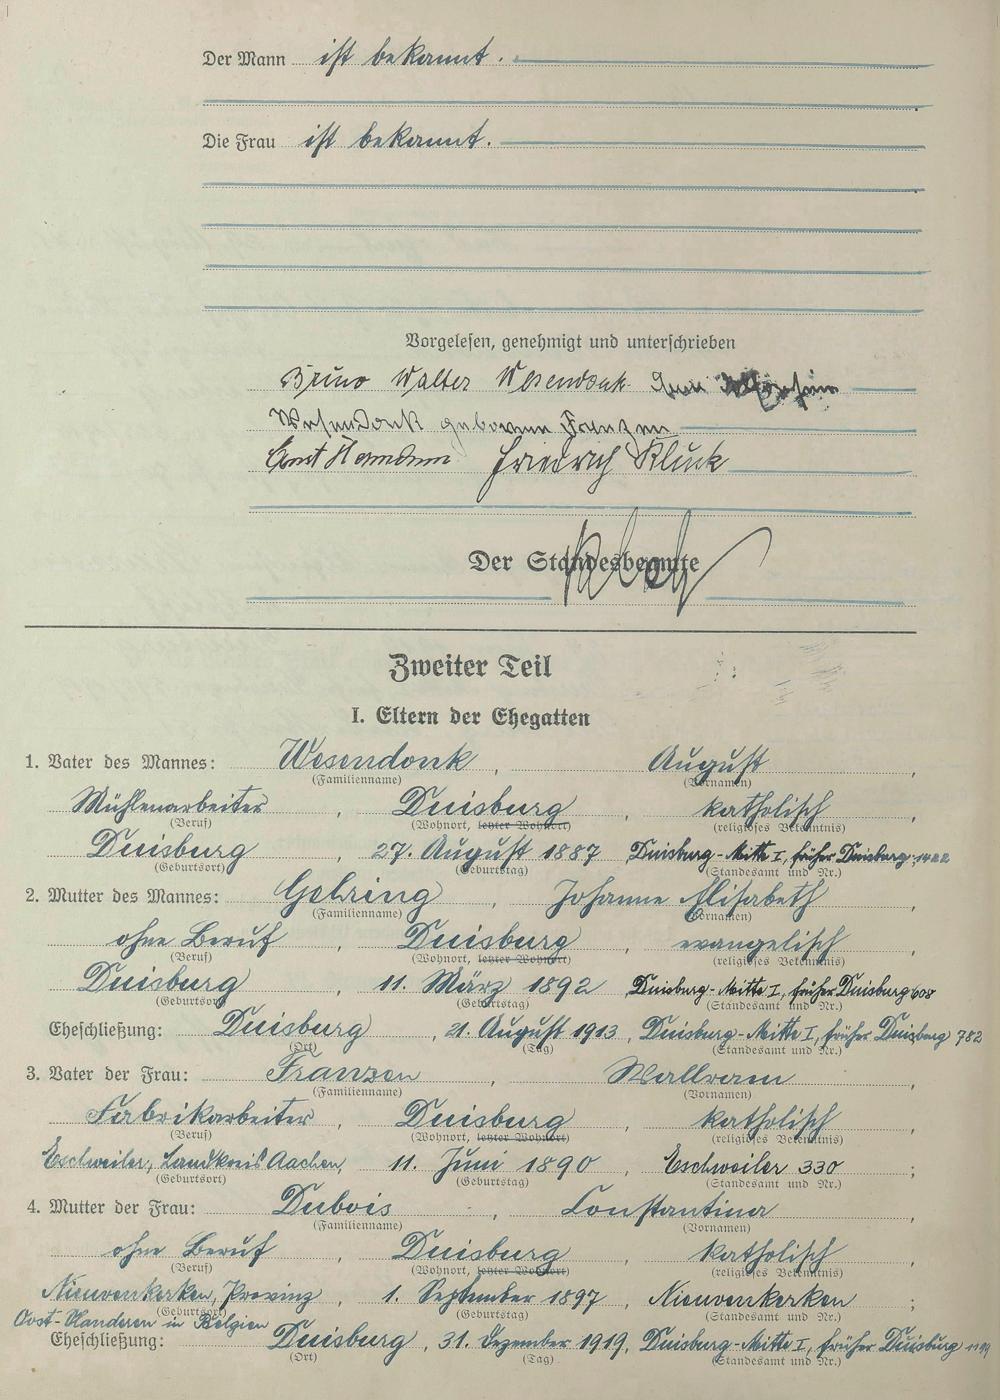 Der Mann ist bekannt.
Die Frau ist bekannt.
Vorgelesen, genehmigt und unterschrieben
Bruno Walter Wesendonk
Wesendonk geborene Franzen
Friedrich Kluck
Der Standesbeamte
Zweiter Teil
I. Eltern der Ehegatten
1. Vater des Mannes: Wesendonk, August,
(Familienname) (Vornamen)
Mühlenarbeiter, Duisburg, katholisch,
(Beruf) (Wohnort, letzter Wohnort) (religiöses Bekenntnis)
Duisburg, 27. August 1887 Duisburg-Mitte I, früher Duisburg 1422
(Geburtsort) (Geburtstag) (Standesamt und Nr.)
2. Mutter des Mannes: Gehring, Johanne Elisabeth,
(Familienname) (Vornamen)
ohne Beruf, Duisburg, evangelisch,
(Beruf) (Wohnort, letzter Wohnort) (religiöses Bekenntnis)
Duisburg, 11. März 1892 Duisburg-Mitte I, früher Duisburg 608
(Geburtsort) (Geburtstag) (Standesamt und Nr.)
Eheschließung: Duisburg, 21. August 1913, Duisburg-Mitte I, früher Duisburg 782
(Ort) (Tag) (Standesamt und Nr.)
3. Vater der Frau: Franzen, Wallram,
(Familienname) (Vornamen)
Fabrikarbeiter, Duisburg, katholisch,
(Beruf) (Wohnort, letzter Wohnort) (religiöses Bekenntnis)
Eschweiler, Landkreis Aachen, 11. Juni 1890, Eschweiler 330;
(Geburtsort) (Geburtstag) (Standesamt und Nr.)
4. Mutter der Frau: Dubois, Constantina,
(Familienname) (Vornamen)
ohne Beruf, Duisburg, katholisch,
(Beruf) (Wohnort, letzter Wohnort) (religiöses Bekenntnis)
Nieuvenkerken, Provinz, 1. September 1897, Nieuvenkerken;
(Geburtsort) (Geburtstag) (Standesamt und Nr.)
Oost-Flanderen in Belgien
Eheschließung: Duisburg, 31. Dezember 1919, Duisburg-Mitte I, früher Duisburg
(Ort) (Tag) (Standesamt und Nr.)